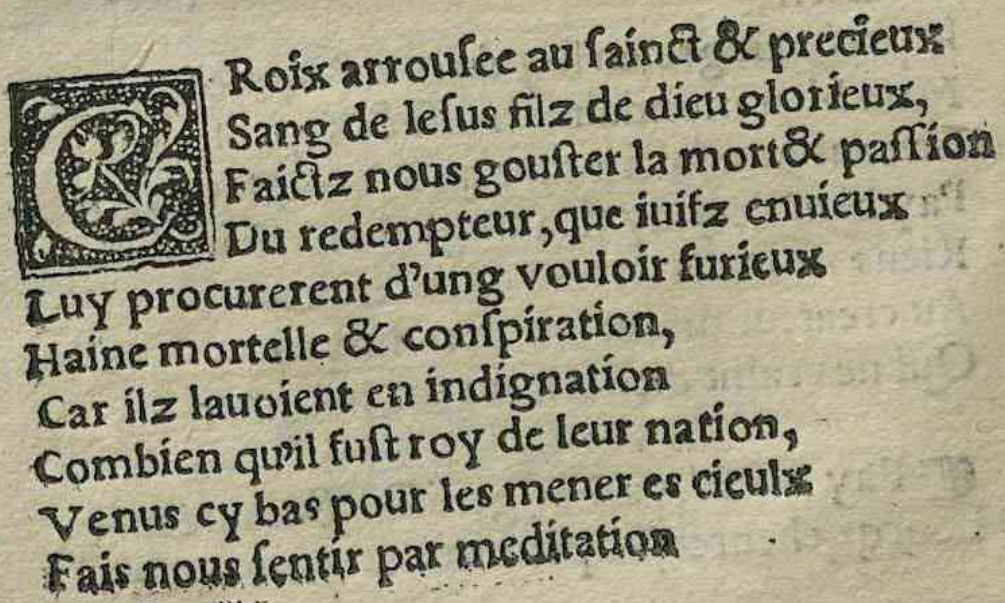 CRoix arrouſee au ſainct & precieux
Sang de Ieſus filz de dieu glorieux,
Faictz nous gouſter la mort& paſſion
Du redempteur,que iuifz enuieux
Luy procurerent d'ung vouloir furieux
Haine mortelle & conſpiration,
Car ilz lauoient en indignation
Combien qu'il fuſt roy de leur nation,
Venus cy bas pour les mener es cieulx
Fais nous ſentir par meditation